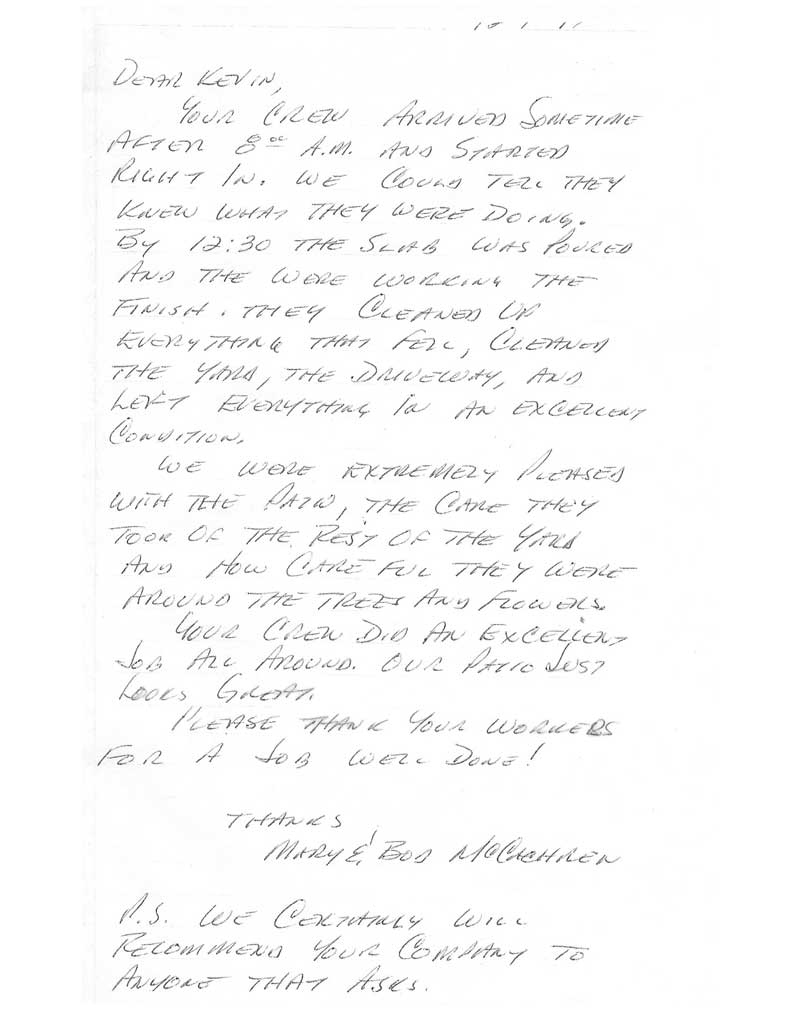 Dear Kevin,
Your crew arrived sometime
after 8:00 A.M. and started
right in. We could tell they
knew what they were doing.
By 12:30 the slab was poured
and the were working the
finish. They cleaned up
everything that fell, cleaned
the yard, the driveway, and
left everything in an excellent
condition.
We were extremely pleased
with the patio, the care they
took of the rest of the yard
and how careful they were
around the trees and flowers.
Your crew did an excellent
job all around. Our patio just
looks great.
Please thank your workers
for a job well done!
Thanks
Mary & Bob McCachren
P.S. We certainly will
recommend your company to
anyone that asks.